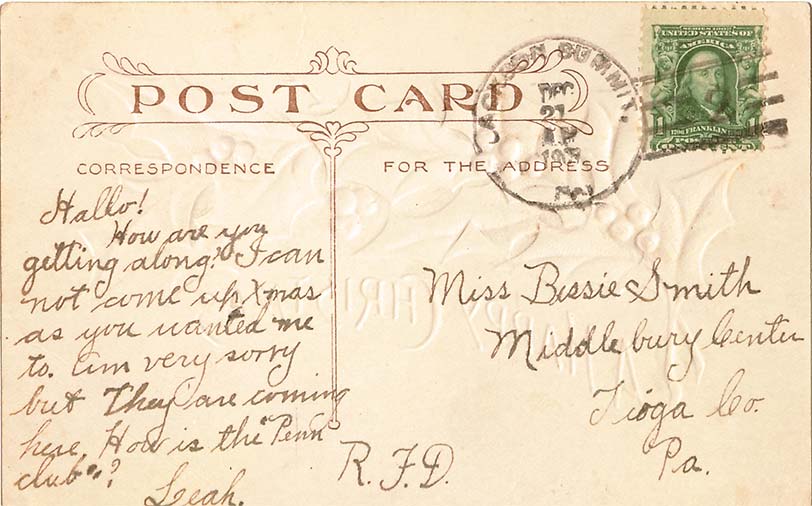 POST CARD
CORRESPONDENCE
FOR THE ADDRESS
JACKSON SUMMIT.
DEC
21
SERIES 1902
UNITED STATES OF
AMERICA
1 FRANKLIN 1
Hallo!
How are you
getting along? I can
not come up Xmas
as you wanted me
to. am very sorry
but They are coming
here. How is the "Penn
club"?
Leah.
Miss Bessie Smith
Middlebury Center
Tioga Co.
Pa.
R.F.D.